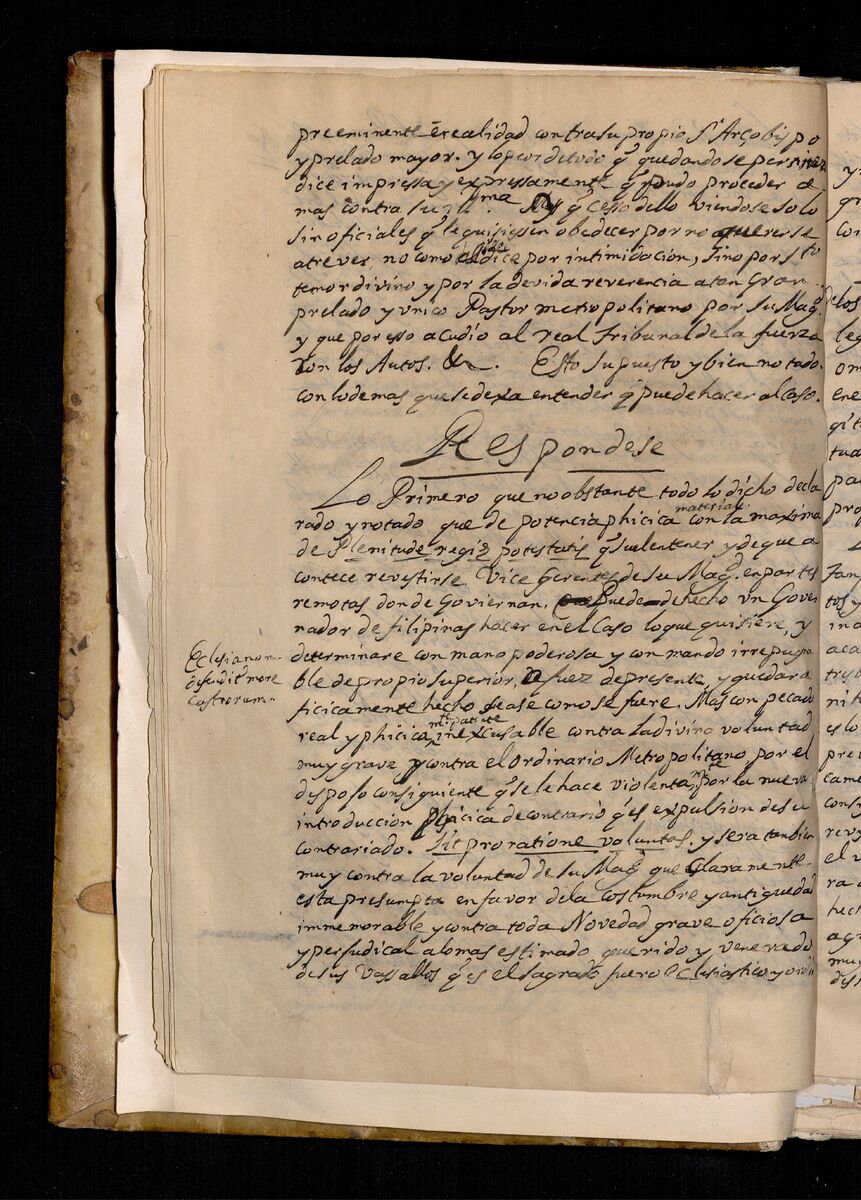 preeminente ẽ realidad contra su propio Sr Arçobispo
y prelado mayor. y lo peor de todo q̃ quedandose pertinaz
dice impressa y expressamente q̃ pudo proceder a
mas contra su Illma. q̃ cesso dello viendose solo
sin oficiales q̃ le quisiesen obedecer por no querer se
atrever no como el dice por intimidacion, sino por sto
temor divino y por la devida reverencia a tan Gran
prelado y unico Pastor metropolitano por su Magd.
y que por esso acudio al real Tribunal de la fuerza
con los Autos. &. Esto supuesto y bien notado
con lo demas que se dexa entender q̃ puede hacer al caso.
Respondese
Lo Primero que no obstante todo lo dicho decla
rado y notado que de potencia phicica material con la maxima
de Plenitude regiæ potestatis q̃ suelen tener y de que a
contece revestirse Vice Gerentes de su Magd. en partes
remotas donde Goviernan. Puede de hecho un Gover
nador de filipinas hacer en el Caso lo que quisiere, y
determinare con mano poderosa y con mando irrepugna
ble de propio superior, de fuez de presente, y quedara
ficicamente hecho sease como se fuere. Mas con pecado
real y phicica mte patente inexcusable contra la divina voluntad
muy grave y contra el ordinario Metropolitano por el
despojo consiguiente q̃ se le hace violentamte por la nueva
introduccion phicica de contrario q̃ es expulsion de su
contrariado. Sit pro ratione voluntas. y sera tambien
muy contra la voluntad de su Magd que claramente
esta presumpta en favor de la costumbre y antiguedad
immemorable y contra toda Novedad grave oficiosa
y perjudical a lo mas estimado querido y venerado
de sus Vassallos q̃ es el sagrado fuero eclesiastico y ordi
Eclesia non
defendit more
castrorum.